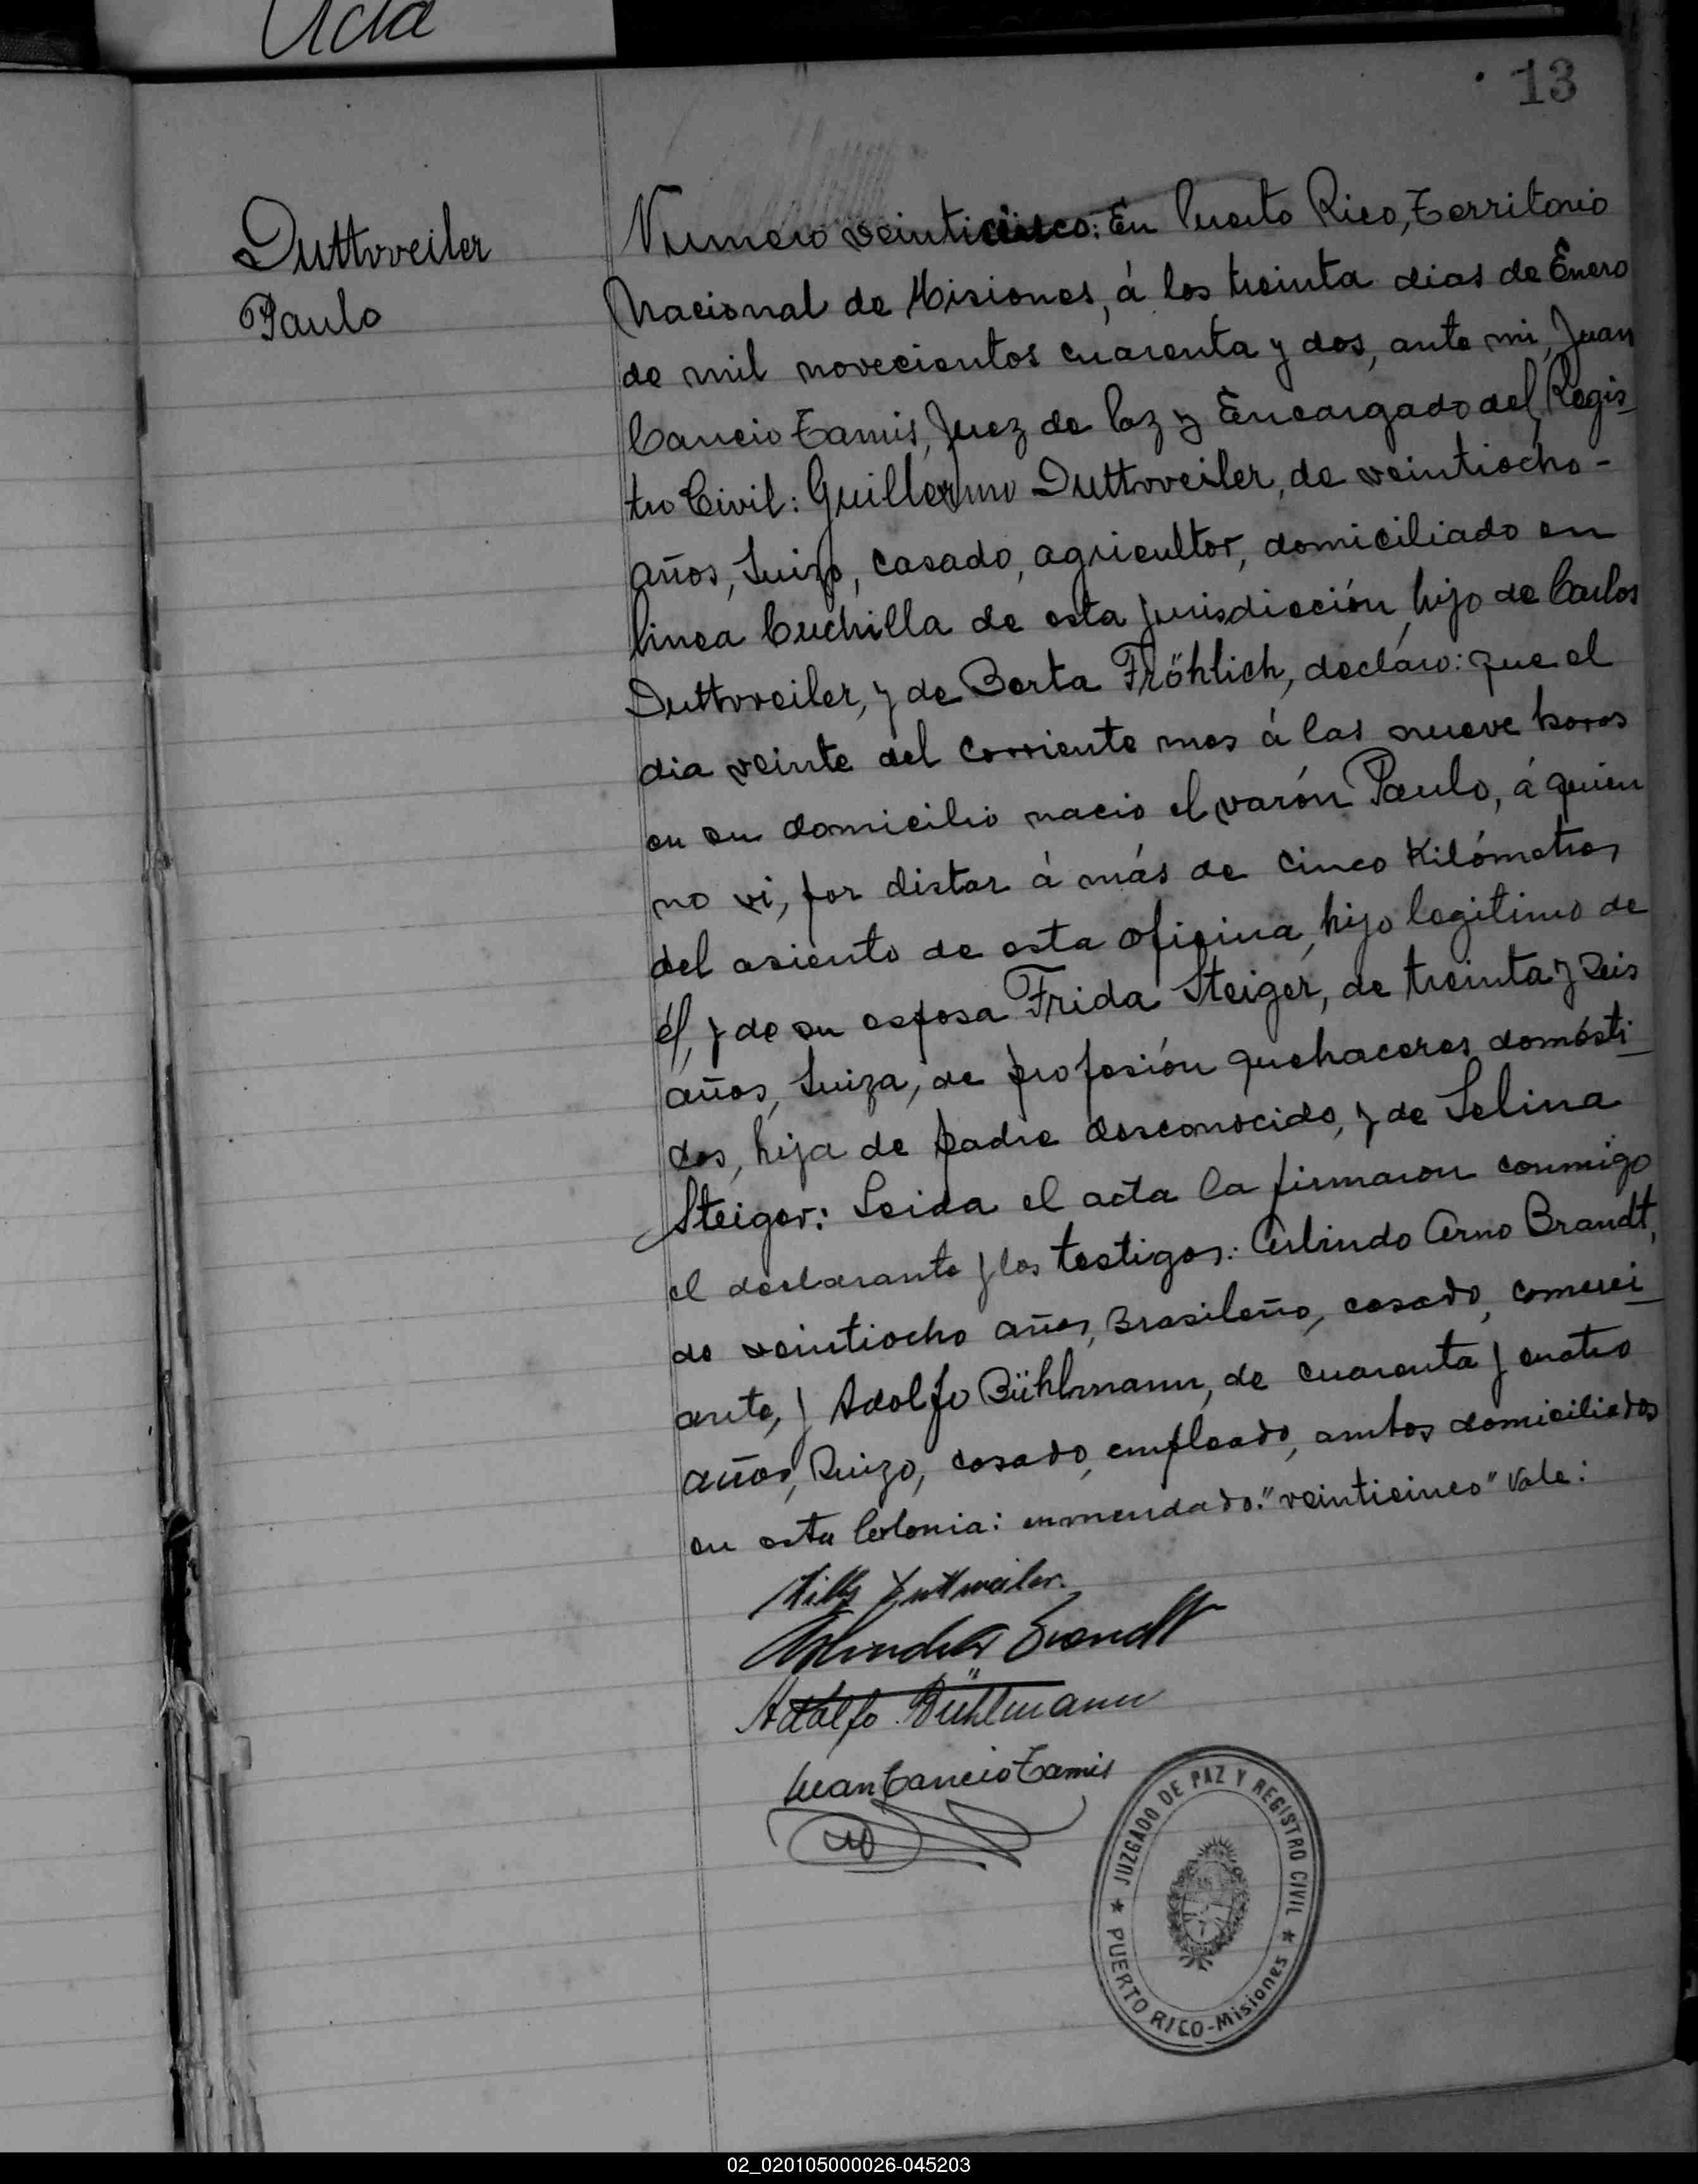 Acta
13
Duttweiler
Paulo
Numero veinticinco: En Puerto Rico, Territorio
Nacional de Misiones, á los treinta dias de Enero
de mil novecientos cuarenta y dos, ante mi, Juan
Cancio Tamis, Juez de Paz y Encargado del Regis_
tro Civil: Guillermo Duttweiler, de veintiocho-
años, Suizo, casado, agricultor, domiciliado en
linea Cuchilla de esta jurisdicción, hijo de Carlos
Duttweiler, y de Berta Fröhlich, declaro: que el
dia veinte del corriente mes á las nueve horas
en su domicilio nacio el varón Paulo, á quien
no vi, por distar á más de cinco Kilómetros
del asiento de esta oficina, hijo legitimo de
él, y de su esposa Frida Steiger, de treinta y seis
años, Suiza, de profesión quehaceres domésti_
cos, hija de padre desconocido, y de Selina
Steiger: Leida el acta la firmaron conmigo
el declarante y los testigos: Arlindo Arno Brandt,
de veintiocho años, Brasileño, casado, comerci_
ante, y Adolfo Bühlmann, de cuarenta y cuatro
años, Suizo, casado, empleado, ambos domiciliados
en esta Colonia: enmendado: "veinticinco" Vale:
Willy Duttweiler.
Arlindo Brandt
Adolfo Bühlmann
Juan Cancio Tamis
JUZGADO DE PAZ Y REGISTRO CIVIL
PUERTO RICO-Misiones
02_020105000026-045203